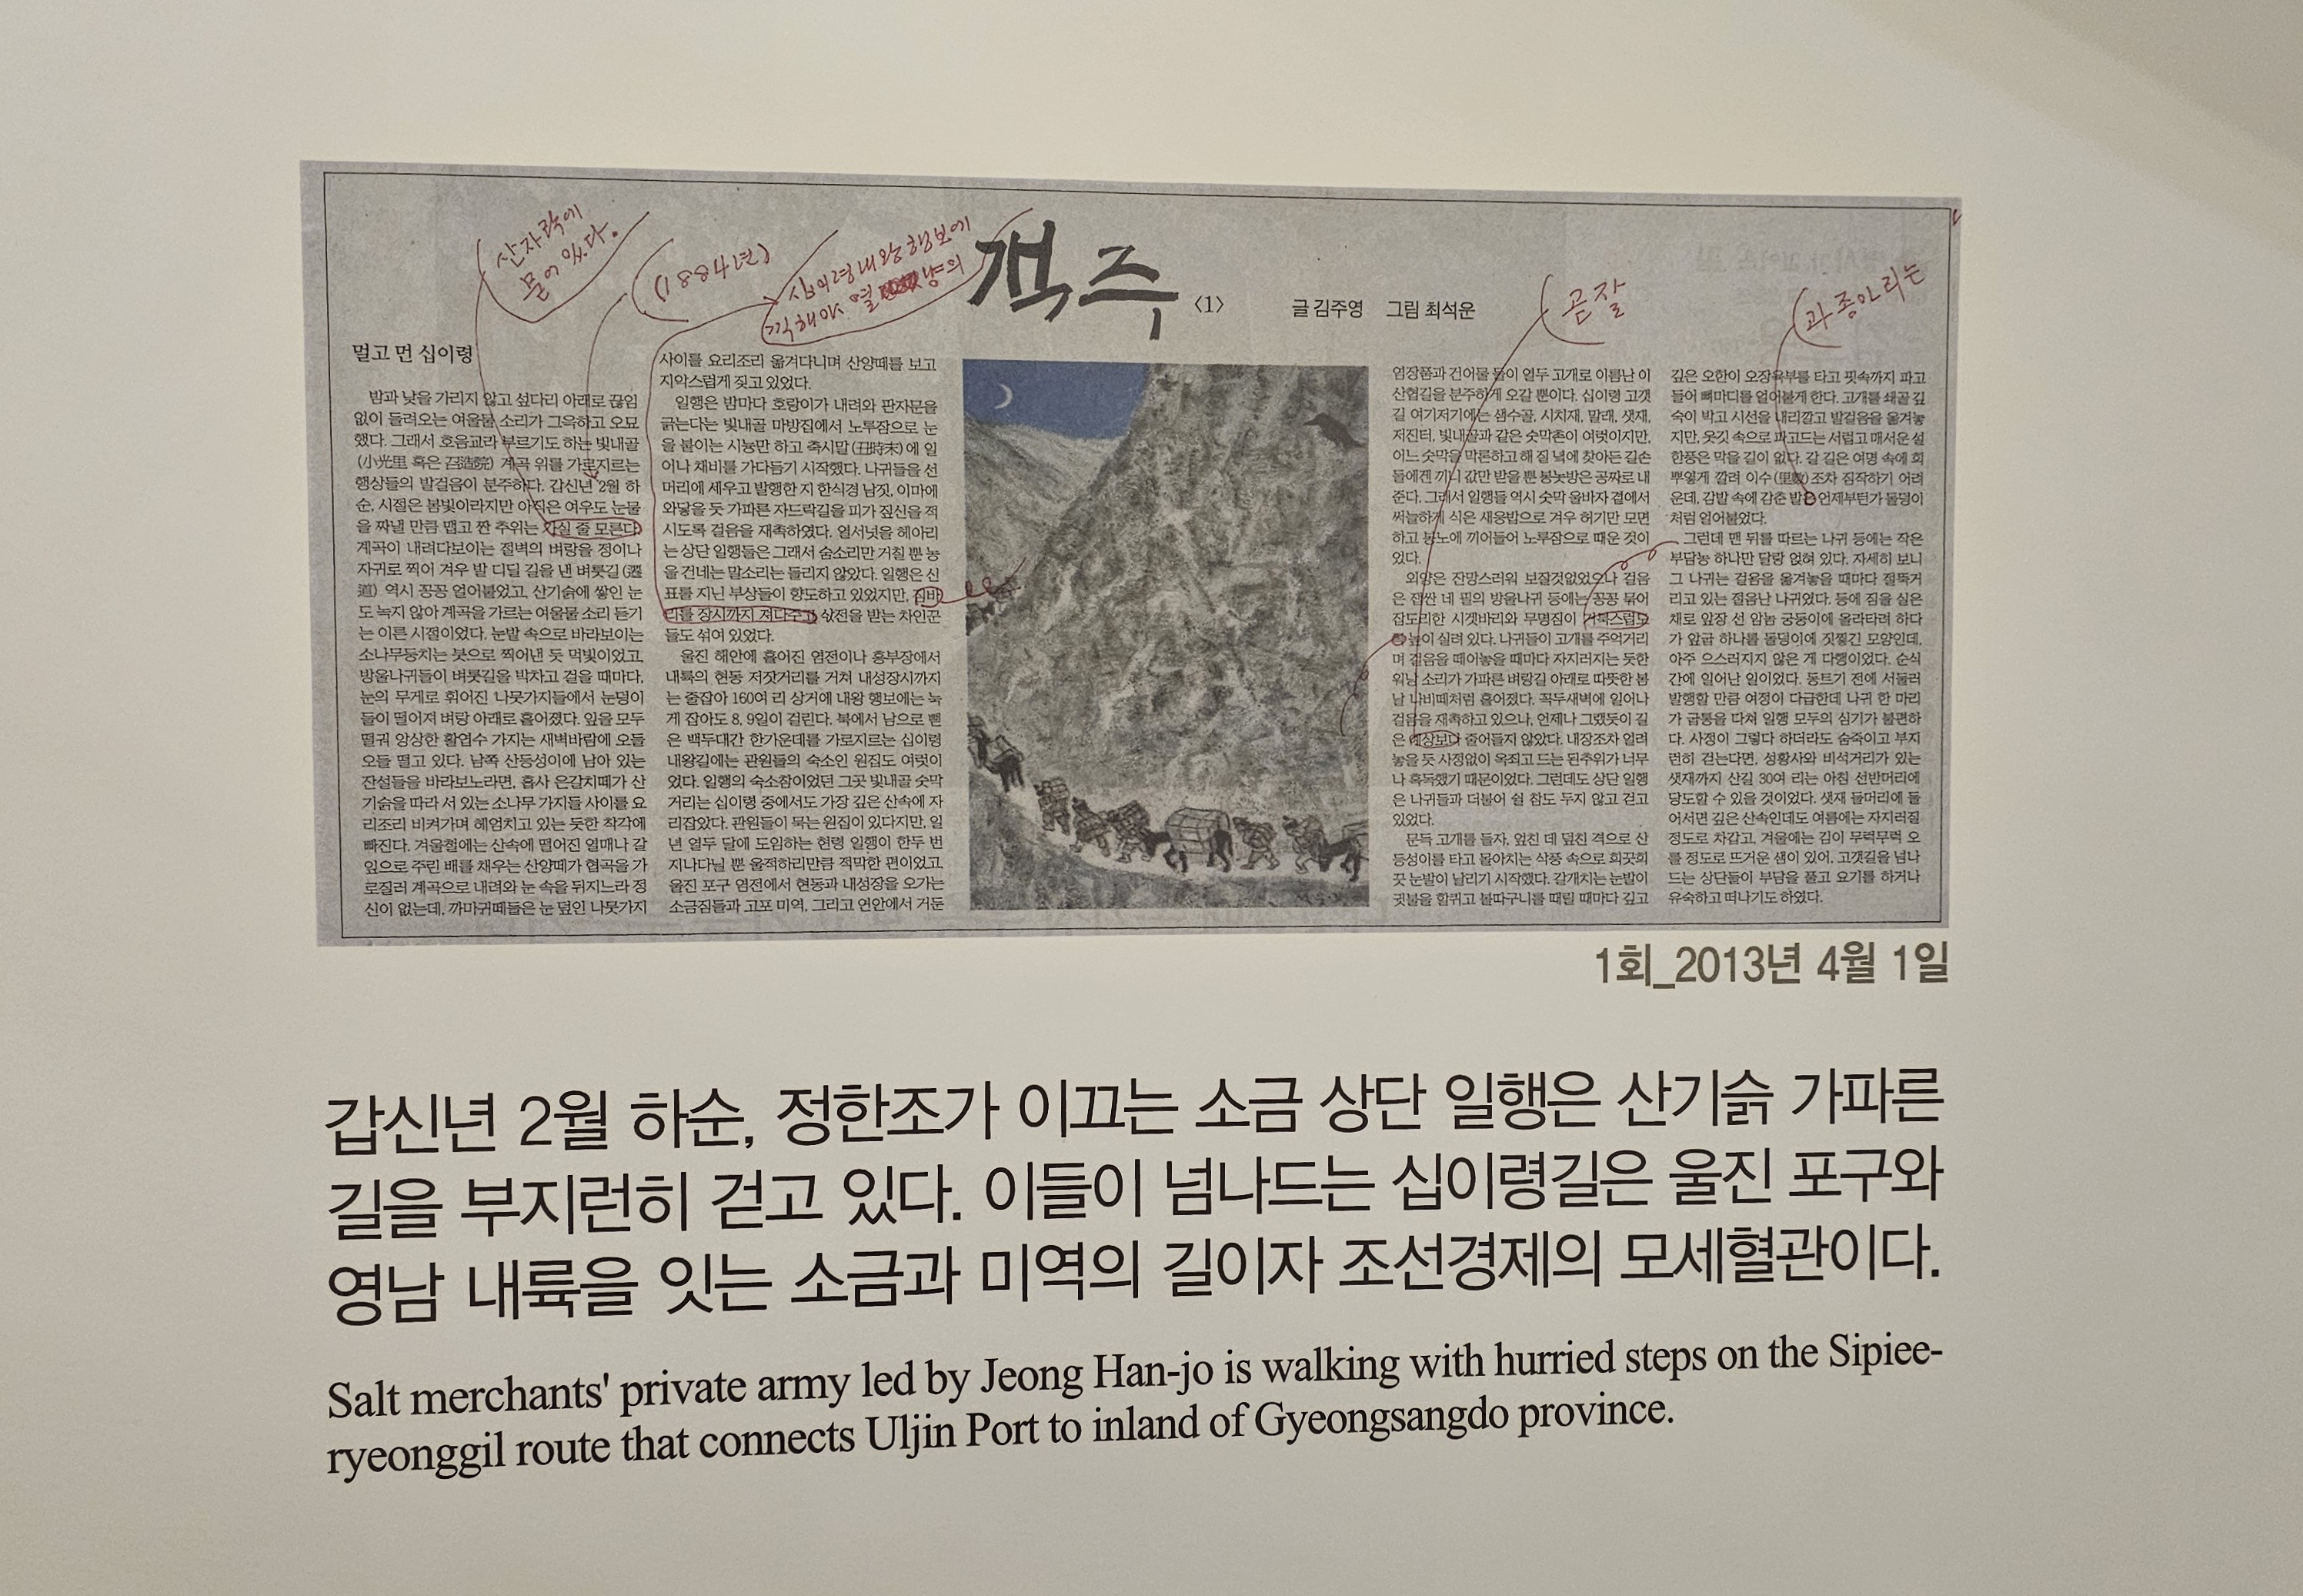 산자락에
묻어 있다.
(1884년)
십이령 내왕 행보에
객주
<1>
글 김주영 그림 최석운
곧잘
과 종아리는
멀고 먼 십이령
밤과 낮을 가리지 않고 섶다리 아래로 끊임
없이 들려오는 여울물 소리가 그윽하고 오묘
했다. 그래서 호음교라 부르기도 하는 빛내골
(小光里 혹은 召造院) 계곡 위를 가로지르는
행상들의 발걸음이 분주하다. 갑신년 2월 하
순, 시절은 봄빛이라지만 아직은 여우도 눈물
을 짜낼 만큼 맵고 짠 추위는 가실 줄 모른다.
계곡이 내려다보이는 절벽의 벼랑을 정이나
자귀로 찍어 겨우 발 디딜 길을 낸 벼룻길(遷
道) 역시 꽁꽁 얼어붙었고, 산기슭에 쌓인 눈
도 녹지 않아 계곡을 가르는 여울물 소리 듣기
는 이른 시절이었다. 눈밭 속으로 바라보이는
소나무둥치는 붓으로 찍어낸 듯 먹빛이었고,
방울나귀들이 벼룻길을 박차고 걸을 때마다,
눈의 무게로 휘어진 나뭇가지들에서 눈덩이
들이 떨어져 벼랑 아래로 흩어졌다. 잎을 모두
떨궈 앙상한 활엽수 가지는 새벽바람에 오들
오들 떨고 있다. 남쪽 산등성이에 남아 있는
잔설들을 바라보노라면, 흡사 은갈치떼가 산
기슭을 따라 서 있는 소나무 가지들 사이를 요
리조리 비켜가며 헤엄치고 있는 듯한 착각에
빠진다. 겨울철에는 산속에 떨어진 열매나 갈
잎으로 주린 배를 채우는 산양떼가 협곡을 가
로질러 계곡으로 내려와 눈 속을 뒤지느라 정
신이 없는데, 까마귀떼들은 눈 덮인 나뭇가지
사이를 요리조리 옮겨다니며 산양떼를 보고
지악스럽게 짖고 있었다.
일행은 밤마다 호랑이가 내려와 판자문을
긁는다는 빛내골 마방집에서 노루잠으로 눈
을 붙이는 시늉만 하고 축시말(丑時末)에 일
어나 채비를 가다듬기 시작했다. 나귀들을 선
머리에 세우고 발행한 지 한식경 남짓, 이마에
와닿을 듯 가파른 자드락길을 피가 짚신을 적
시도록 걸음을 재촉하였다. 열서넛을 헤아리
는 상단 일행들은 그래서 숨소리만 거칠 뿐 농
을 건네는 말소리는 들리지 않았다. 일행은 신
표를 지닌 부상들이 향도하고 있었지만, 짐바
리를 장시까지 져다주고 삯전을 받는 차인꾼
들도 섞여 있었다.
울진 해안에 흩어진 염전이나 흥부장에서
내륙의 현동 저잣거리를 거쳐 내성장시까지
는 줄잡아 160여 리 상거에 내왕 행보에는 눅
게 잡아도 8, 9일이 걸린다. 북에서 남으로 뻗
은 백두대간 한가운데를 가로지르는 십이령
내왕길에는 관원들의 숙소인 원집도 여럿이
었다. 일행의 숙소참이었던 그곳 빛내골 숫막
거리는 십이령 중에서도 가장 깊은 산속에 자
리잡았다. 관원들이 묵는 원집이 있다지만, 일
년 열두 달에 도임하는 현령 일행이 한두 번
지나다닐 뿐 울적하리만큼 적막한 편이었고,
울진 포구 염전에서 현동과 내성장을 오가는
소금짐들과 고포 미역, 그리고 연안에서 거둔
염장품과 건어물 들이 열두 고개로 이름난 이
산협길을 분주하게 오갈 뿐이다. 십이령 고갯
길 여기저기에는 샘수골, 시치재, 말래, 샛재,
저진터, 빛내골과 같은 숫막촌이 여럿이지만,
어느 숫막을 막론하고 해 질 녘에 찾아든 길손
들에겐 끼니 값만 받을 뿐 봉놋방은 공짜로 내
준다. 그래서 일행들 역시 숫막 울바자 곁에서
써늘하게 식은 새옹밥으로 겨우 허기만 모면
하고 봉노에 끼어들어 노루잠으로 때운 것이
었다.
외양은 잔망스러워 보잘것없었으나 걸음
은 잽싼 네 필의 방울나귀 등에는 꽁꽁 묶어
잡도리한 시겟바리와 무명짐이
높이 실려 있다. 나귀들이 고개를 주억거리
며 걸음을 떼어놓을 때마다 자지러지는 듯한
워낭 소리가 가파른 벼랑길 아래로 따뜻한 봄
날 나비떼처럼 흩어졌다. 꼭두새벽에 일어나
걸음을 재촉하고 있으나, 언제나 그랬듯이 길
은 예상보다 줄어들지 않았다. 내장조차 얼려
놓을 듯 사정없이 옥죄고 드는 된추위가 너무
나 혹독했기 때문이었다. 그런데도 상단 일행
은 나귀들과 더불어 쉴 참도 두지 않고 걷고
있었다.
문득 고개를 들자, 엎친 데 덮친 격으로 산
등성이를 타고 몰아치는 삭풍 속으로 희끗희
끗 눈발이 날리기 시작했다. 갈개치는 눈발이
귓불을 할퀴고 볼따구니를 때릴 때마다 깊고
깊은 오한이 오장육부를 타고 핏속까지 파고
들어 뼈마디를 얼어붙게 한다. 고개를 쇄골 깊
숙이 박고 시선을 내리깔고 발걸음을 옮겨놓
지만, 옷깃 속으로 파고드는 서럽고 매서운 설
한풍은 막을 길이 없다. 갈 길은 여명 속에 희
뿌옇게 깔려 이수(里數)조차 짐작하기 어려
운데, 감발 속에 감춘 발은 언제부턴가 돌덩이
처럼 얼어붙었다.
그런데 맨 뒤를 따르는 나귀 등에는 작은
부담농 하나만 달랑 얹혀 있다. 자세히 보니
그 나귀는 걸음을 옮겨놓을 때마다 절뚝거
리고 있는 절음난 나귀였다. 등에 짐을 실은
채로 앞장 선 암놈 궁둥이에 올라타려 하다
가 앞굽 하나를 돌덩이에 짓찧긴 모양인데,
아주 으스러지지 않은 게 다행이었다. 순식
간에 일어난 일이었다. 동트기 전에 서둘러
발행할 만큼 여정이 다급한데 나귀 한 마리
가 굽통을 다쳐 일행 모두의 심기가 불편하
다. 사정이 그렇다 하더라도 숨죽이고 부지
런히 걷는다면, 성황사와 비석거리가 있는
샛재까지 산길 30여 리는 아침 선반머리에
당도할 수 있을 것이었다. 샛재 들머리에 들
어서면 깊은 산속인데도 여름에는 자지러질
정도로 차갑고, 겨울에는 김이 무럭무럭 오
를 정도로 뜨거운 샘이 있어, 고갯길을 넘나
드는 상단들이 부담을 풀고 요기를 하거나
유숙하고 떠나기도 하였다.
1회_2013년 4월 1일
갑신년 2월 하순, 정한조가 이끄는 소금 상단 일행은 산기슭 가파른
길을 부지런히 걷고 있다. 이들이 넘나드는 십이령길은 울진 포구와
영남 내륙을 잇는 소금과 미역의 길이자 조선경제의 모세혈관이다.
Salt merchants' private army led by Jeong Han-jo is walking with hurried steps on the Sipiee-
ryeonggil route that connects Uljin Port to inland of Gyeongsangdo province.